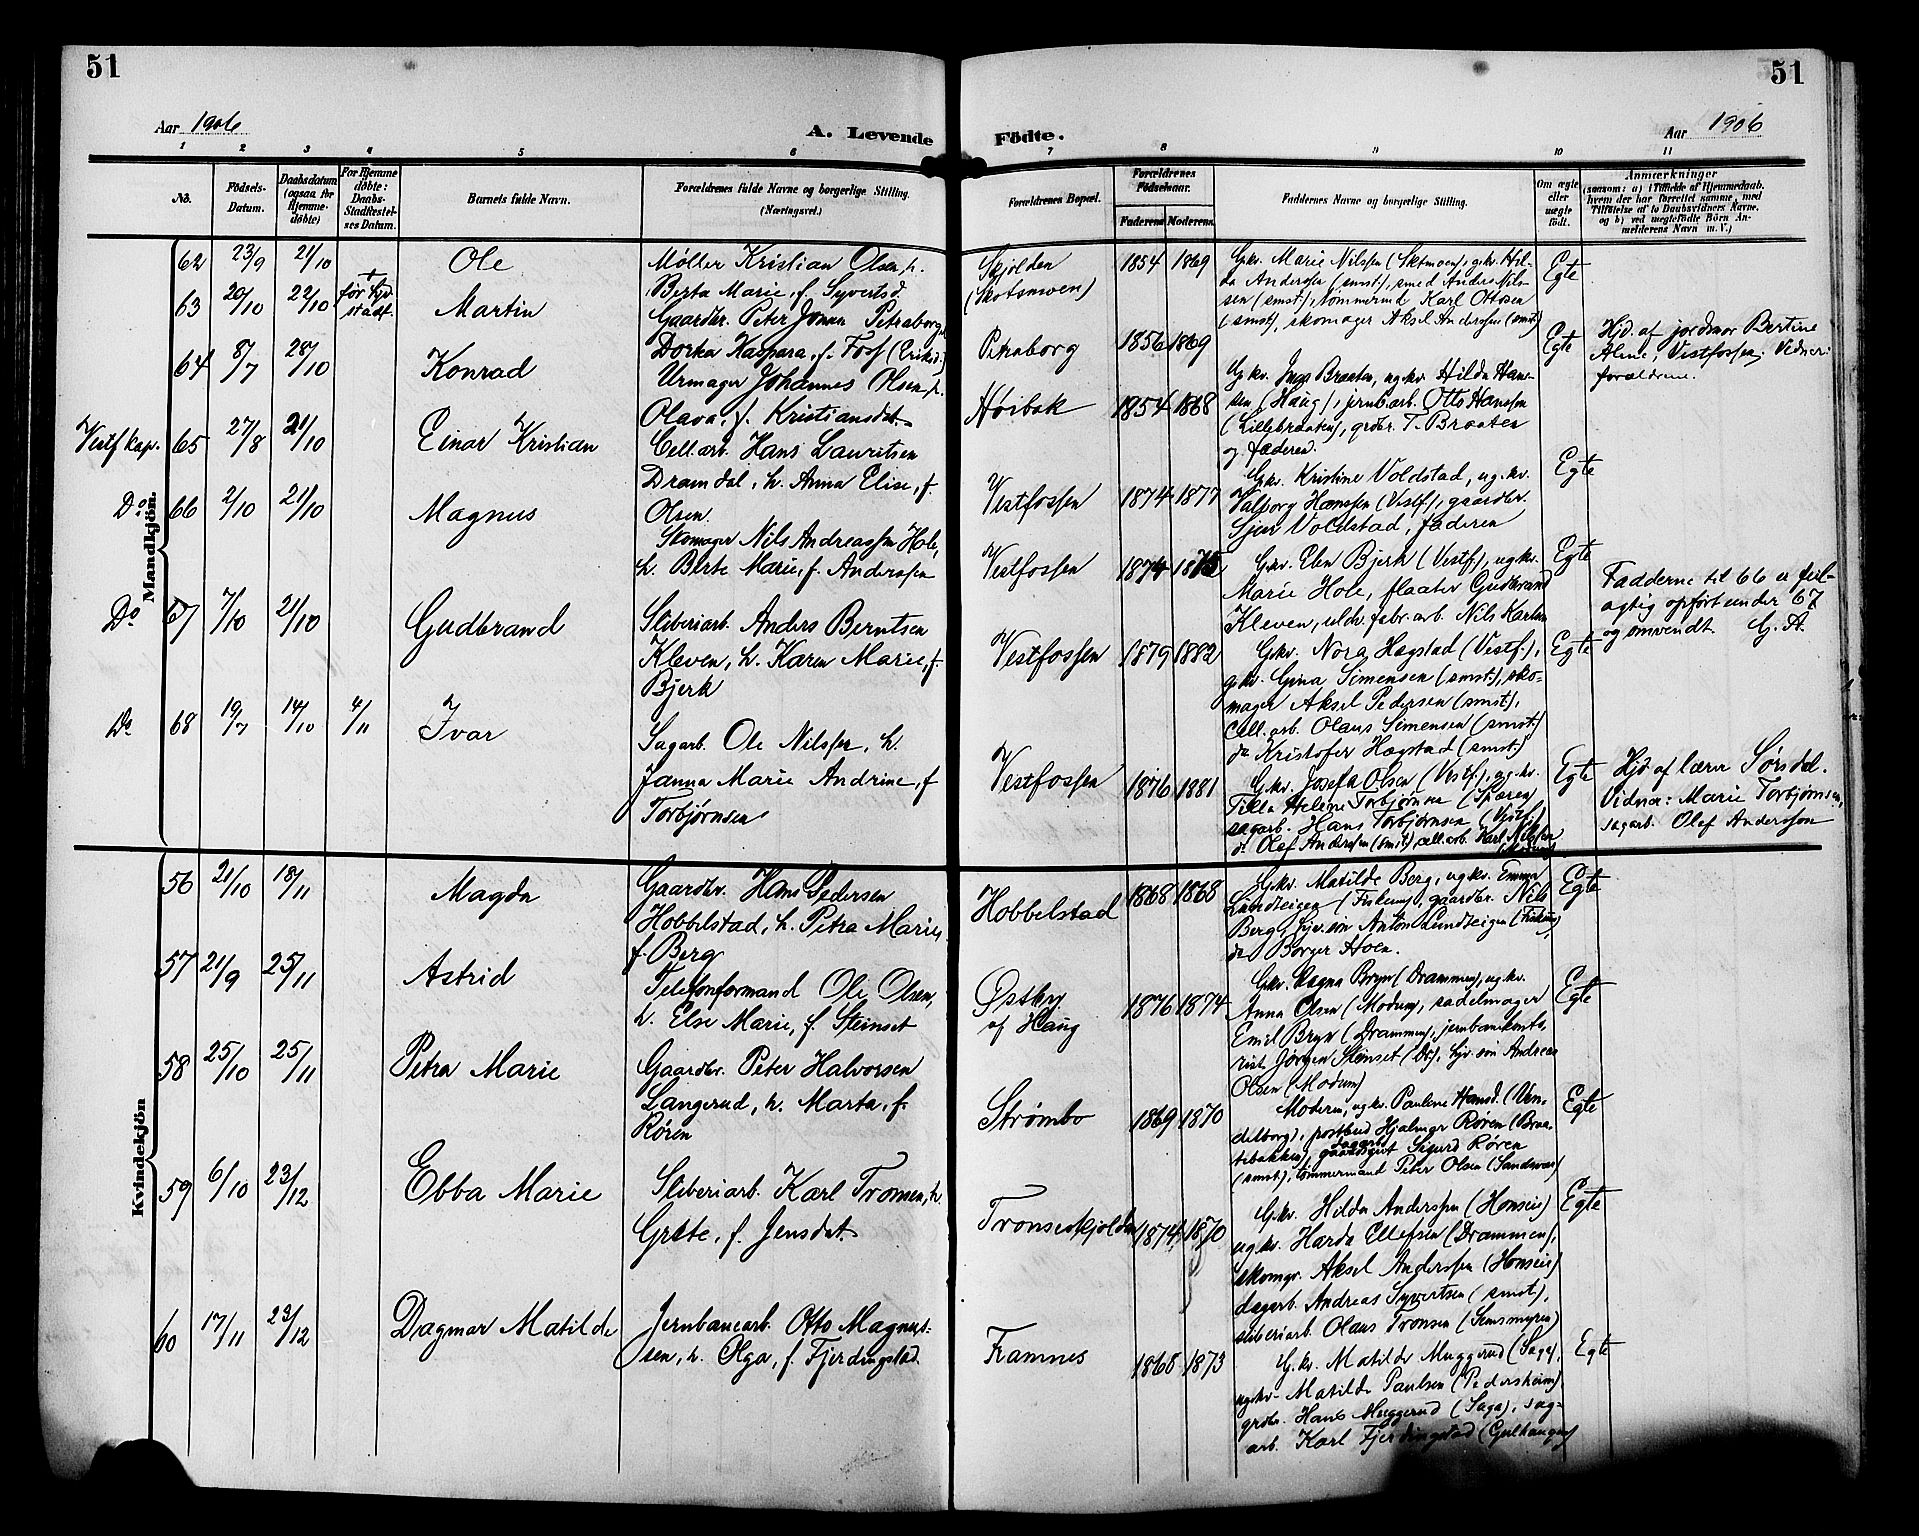 51
51
Aar 1906
A. Levende
Födte.
Aar 1906
1 2 3 4 5 6 7 8 9 10 11
No.
Födsels-Datum.
Daabsdatum (ogsaa for Hjemme-döbte)
For Hjemme döbte: Daabs-Stadfæstel-ses Datum.
Barnets fulde Navn.
Forældrenes fulde Navne og borgerlige Stilling.
(Næringsvei.)
Forældrenes Bopæl.
Forældrenes Födselsaar.
Faderens Moderens
Faddernes Navne og borgerlige Stilling.
Om ægte eller uægte födt.
Anmærkninger
(saasom: a) i Tilfælde af Hjemmedaab,
hvem der har forrettet samme, med
Tilföielse af to Daabsvidners Navne,
og b) ved uægtefödte Börn An-
melderens Navn m. V.)
Mandkjön.
62 23/9 21/10 Ole
Møller Kristian Olsen, h.
Berta Marie, f. Syvertsd.
Skjolden
(Skotsmoen)
1854 1869
Gkv. Marie Nilssen (Skotmoen), gkv. Hil-
da Anderssen (smst.), smed Anders Nils-
sen (smst.), tømmermd Karl Ottosen
(smst), skomager Aksel Anderssen (smst)
Egte
63 20/10 22/10 † før Hjd. stadf. Martin
Gaardbr. Peter Jonsen Petraborg
Dorka Kaspara, f. Foss (Eriksd.)
Petraborg
1856 1869
Egte
Hjd. af jordmor Bertine
Alme, Vestfossen; Vidner:
forældrene.
64 8/7 28/10 Konrad
Urmager Johannes Olsen, h.
Olava, f. Kristiansdat.
Høibak
1854 1868
Ug kv. Inga Braaten, ugkv Hilda Hans-
sen (Haug), jernb.arb. Otto Hanssen
(Lillebraaten), grdbr. T. Braaten
og faderen.
Egte
Vestf kap. 65 27/8 21/10 Einar Kristian
Cell.arb. Hans Lauritsen
Dramdal, h. Anna Elise, f.
Olsen.
Vestfossen
1874 1877
Gkv. Kristine Voldstad, ugkv.
Valborg Hanssen (Vestf), gaardbr.
Sjur Voldstad, faderen
Egte
Do 66 2/10 21/10 Magnus
Skomager Nils Andreassen Hole,
h. Berte Marie, f. Anderssen
Vestfossen
1874 1875
Gkv. Elen Bjerk (Vestf), ugkv.
Marie Hole, flaater Gudbrand
Kleven, uldv.fabr.arb. Nils Karlsen
Egte
Fadderne til 66 er feil-
agtig opført under 67
og omvendt. G. A.
Do 67 7/10 21/10 Gudbrand
Sliberiarb. Anders Berntsen
Kleven, h. Karen Marie, f.
Bjerk
Vestfossen
1879 1882
Gkv. Nora Hægstad (Vestf.),
gkv. Gina Simensen (smst), sko-
mager Aksel Pedersen (smst),
Cell.arb. Olaus Simensen (smst.)
do Kristofer Hægstad (smst.)
Do 68 19/7 14/10 4/11 Ivar
Sagarb. Ole Nilssen, h.
Janna Marie Andrine, f
Torbjørnsen
Vestfossen
1876 1881
Gkv. Josefa Olsen (Vestf), ugkv.
Tilla Helene Torbjørnsen
sagarb. Hans Torbjørnsen
do Olaf Anderssen (smst) cell.arb. Karl Nilssen
(Modum)
Egte
Hjd. af lærer Sørsdal.
Vidner: Marie Torbjørnsen,
sagarb. Olaf Anderssen
Kvindekjön
56 21/10 18/11 Magda
Gaardbr. Hans Pedersen
Hobbelstad, h. Petra Marie,
f Berg
Hobbelstad
1868 1868
Gkv. Matilde Berg, ugkv. Emma
Lundteigen (Fiskum), gaardbr. Nils
Berg, gjv. søn Anton Lundteigen (Fiskum),
do Borger Hoen.
Egte
57 21/9 25/11 Astrid
Telefonformand Ole Olsen,
h. Else Marie, f. Steinset
Østby
af Haug
1876 1874
Gkv. Magna Bryn (Drammen), ugkv.
Anna Olsen (Modum), sadelmager
Emil Bryn (Drammen), jernbanekonto-
rist Jørgen Steinset (Dr), hjv. søn Andreas
Olsen (Modum)
Egte
58 25/10 25/11 Petra Marie
Gaardbr. Peter Halvorsen
Langerud, h. Marta, f.
Røren
Strømbo
1869 1870
Moderen, ugkv. Pauline Hansd. (Ven-
delborg), postbud Hjalmar Røren (Braa-
tebakken), sagarb. Sigurd Røren
(smst), tømmermand Peter Olsen (Sandsvær)
Egte
59 6/10 23/12 Ebba Marie
Sliberiarb. Karl Tronsen, h.
Grete, f. Jensdat.
Tronseskjolden
1874 1870
Gkv. Hilda Anderssen (Honseie)
ugkv. Harda Ellefsen (Drammen),
skomgr. Aksel Anderssen (Honseie)
dagarb. Andreas Syvertsen (smst),
sliberiarb. Olaus Tronsen (Semsmyren)
Egte
60 17/11 23/12 Dagmar Matilde
Jernbanearb. Otto Magnus-
sen, h. Olga, f. Fjerdingstad.
Framnes
1868 1873
Gkv. Matilde Muggerud (Saga),
ugkv. Matilde Paulsen (Pedersheim),
grdbr. Hans Muggerud (Saga), sag-
arb. Karl Fjerdingstad (Gulhaugen)
Egte